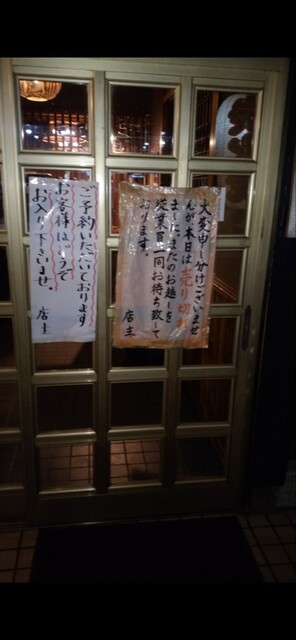 大変申し訳ございませ
んが本日は売り切れ
ました。またのお越しを
従業員一同お待ち致して
おります。
店主
ご予約いただいております
お客様はどうぞ
お入り下さいませ。
店主